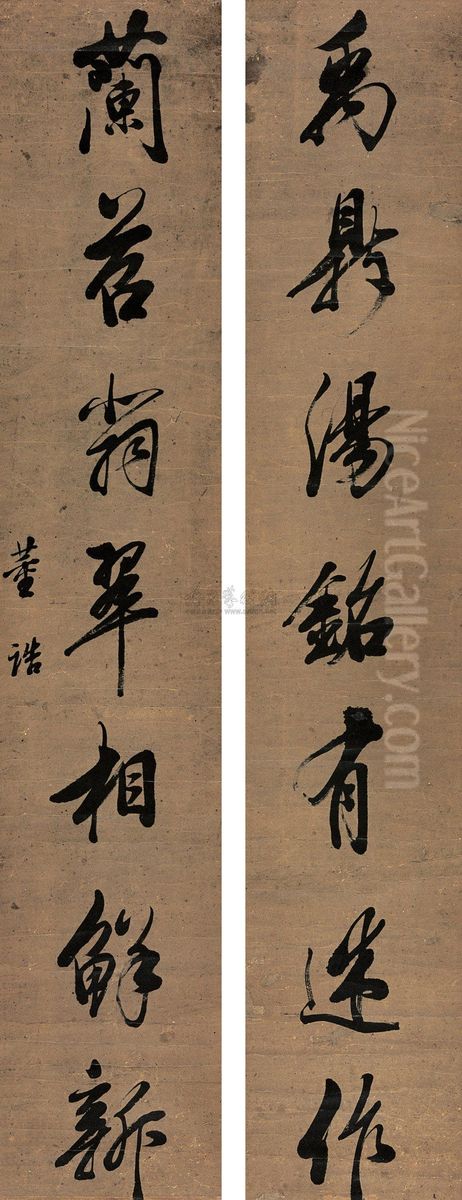 禹鼎湯銘有述作
蘭苕翡翠相鮮新
董誥
NiceArtGallery.com